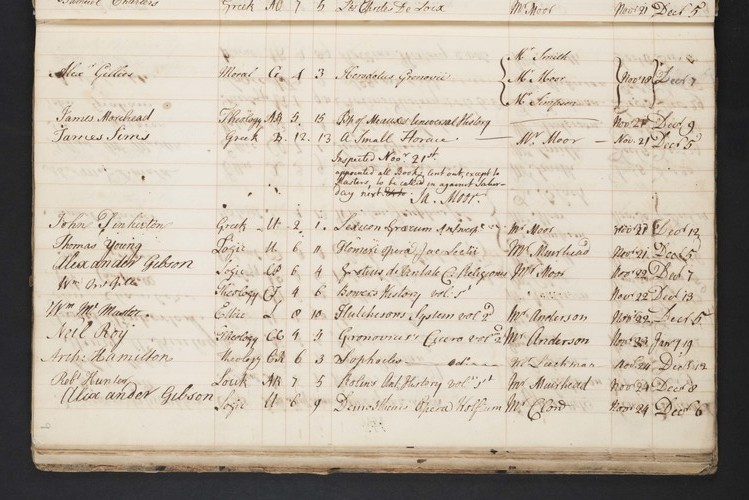 Samuel Charters Greek AO 7 5 De Mr Moor Novr 21 Decr 5
Mr Smith
Alexr Gillies Moral G. 4 3 Herodotus Gronovii { Mr Moor } Novr 18 } Decr 7
Mr Simpson
James Morehead Theology AB 5. 15 Bp of Meaux's Universal History Novr 21 Decr 9
James Sims Greek B. 12. 13 A Small Horace — Mr Moor — Nov 21 Decr 5
Inspected Novr 21st.
appointed all Books lent out, except to
Masters, to be called in against Satur-
day next. Ja. Moor.
John Pinkerton Greek U 2 1. Lexicon Græcum Mr Moor Novr 21 Decr 12
Thomas Young Logic U. 6 11 Homeri opera Mr Muirhead Novr 21 Decr 5
Alexander Gibson Logic 6 4 Grotius de Religionis Mr Moor Novr 22 Decr 7
Wm Theology 4 6 Bower's History vol. 5t Novr 22 Decr 13
Wm Mc Master Ethic 8 10 Hutchesons System vol 2d Mr Anderson Novr 22 Decr 5
Neil Roy Theology CC 4 5 Gronovius's Cicero vol 2d Mr Anderson Novr 23 Jany 19
Archd Hamilton Theology 6 3 Sophocles Mr Leechman Novr 24 Decr 12
Robt Hunter Logick AB 7 5 Rolins Ant. History vol 5t Mr Muirhead Novr 24 Decr 8
Alexander Gibson Logic U 6 9 Demosthenis Opera Wolfium Mr Clow Novr 24 Decr 6